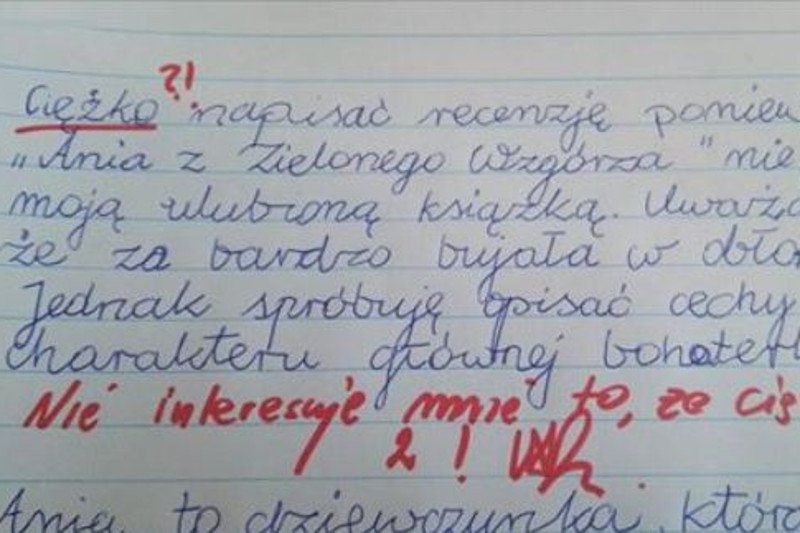 ?!
Ciężko napisać recenzję poniew
„Ania z Zielonego Wzgórza" nie
moją ulubioną książką. Uważa
że za bardzo bujała w obło
Jednak spróbuję opisać cechy
charakteru głównej bohaterk
Nie interesuje mnie to, że cię
2 !
Ania to dziewczynka, która